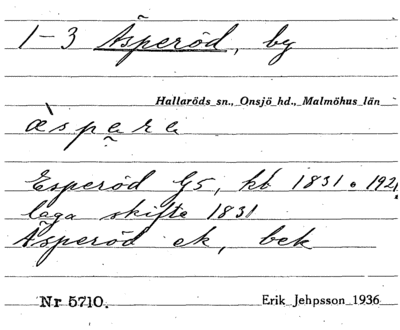 1-3 Äsperöd, by
Hallaröds sn., Onsjö hd., Malmöhus län
æ̀spa̰ra
Esperöd G5, kb 1831 o 1921,
laga skifte 1831
Äsperöd ek, bek
Nr 5710. Erik Jehpsson 1936